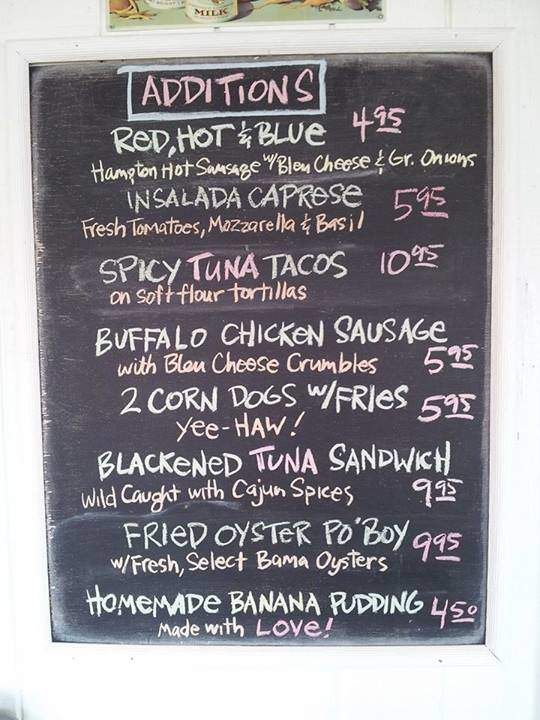 MILK
ADDITIONS
RED, HOT & BLUE 4.95
Hampton Hot Sausage w/Bleu Cheese & Gr. Onions
INSALADA CAPRESE 5.95
Fresh Tomatoes, Mozzarella & Basil
SPICY TUNA TACOS 10.95
on soft flour tortillas
BUFFALO CHICKEN SAUSAGE
with Bleu Cheese Crumbles 5.95
2 CORN DOGS w/FRIES 5.95
Yee-HAW!
BLACKENED TUNA SANDWICH
Wild Caught with Cajun Spices 9.95
FRIED OYSTER PO'BOY 9.95
w/Fresh, Select Bama Oysters
HOMEMADE BANANA PUDDING 4.50
Made with LOVE!